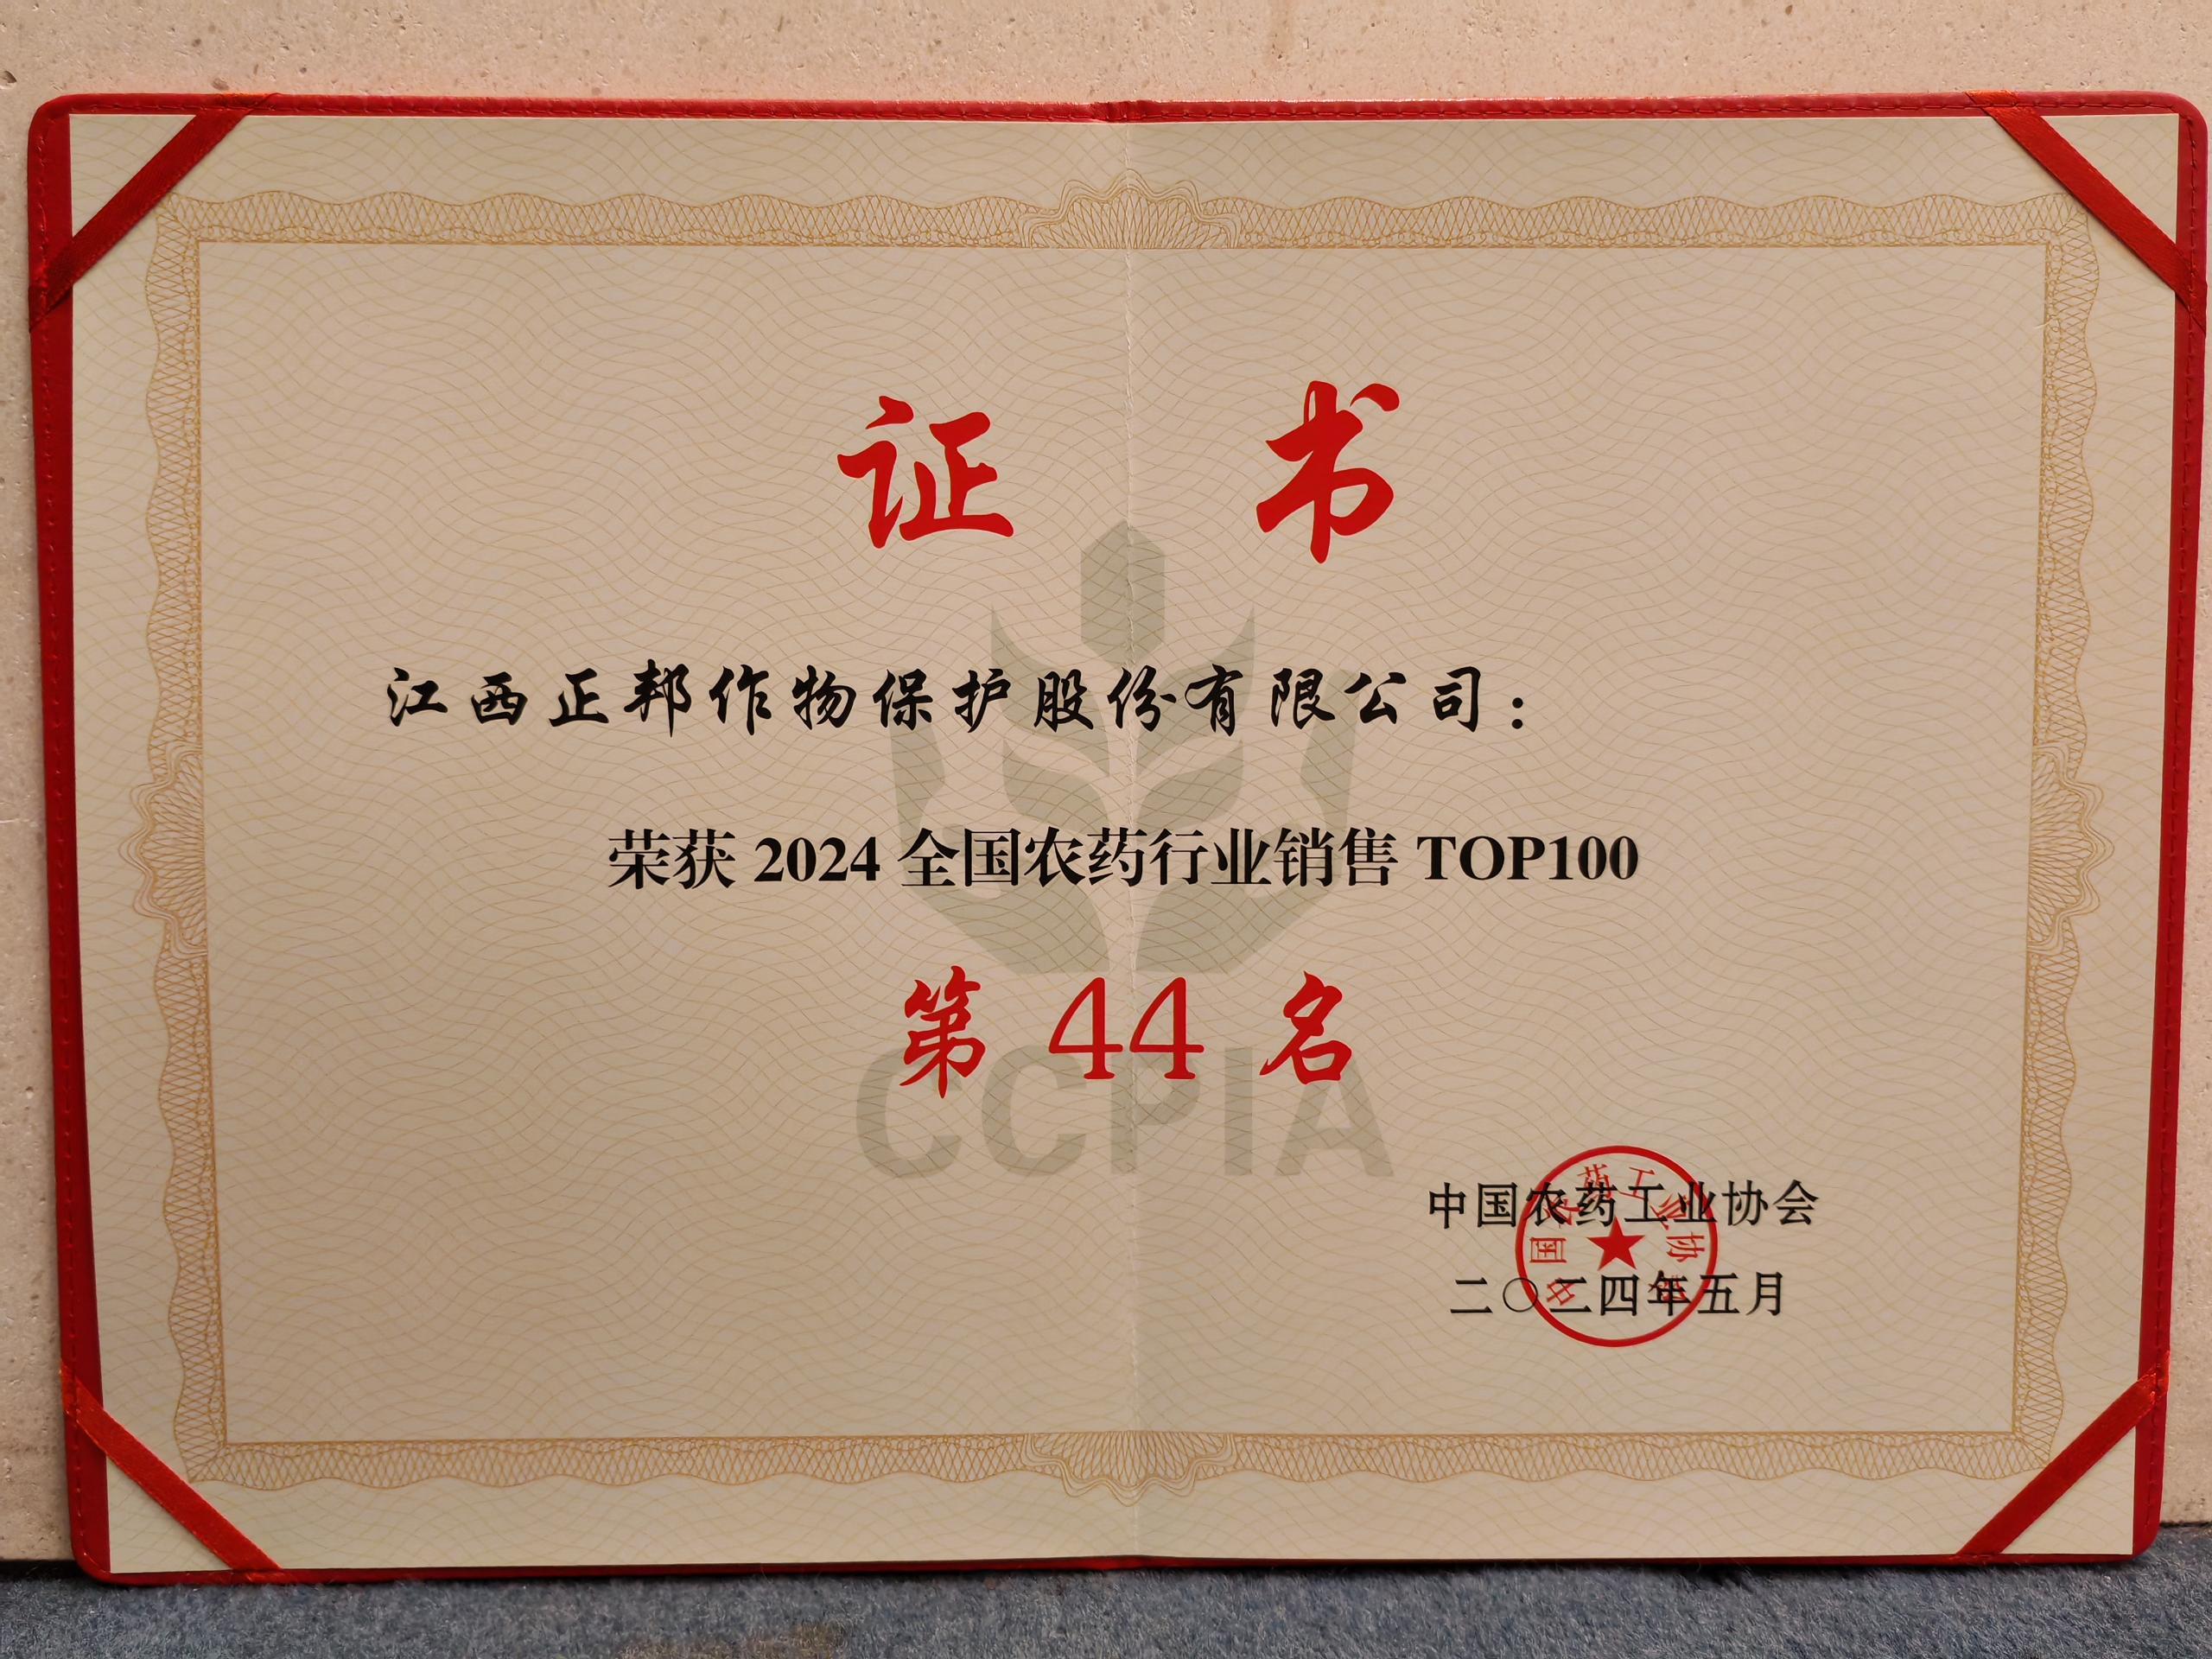 证 书
江西正邦作物保护股份有限公司：
荣获 2024 全国农药行业销售 TOP100
第 44 名
CCPIA
中国农药工业协会
二〇二四年五月
中国农药工业协会